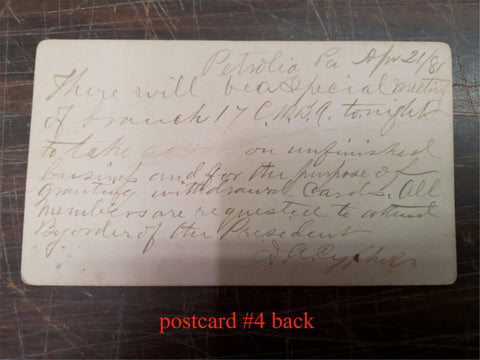 Petrolia Pa Apr 21/81
There will be a Special meeting
of branch 17 C.M.B.A. tonight
to take action on unfinished
business and for the purpose of
granting withdrawal Cards. All
members are requested to attend
By order of the President
postcard #4 back